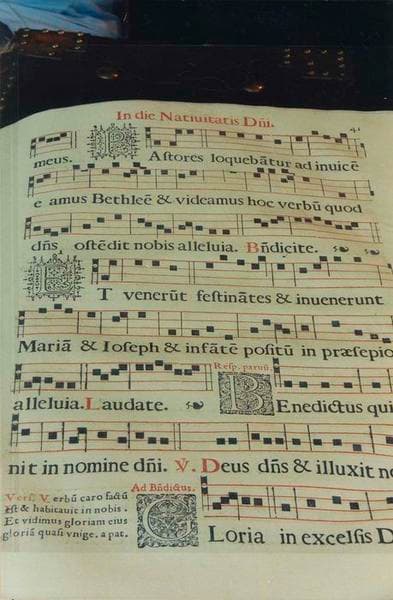 In die Natiuitatis Dñi.
meus. PAstores loquebãtur ad inuicẽ
eamus Bethleẽ & videamus hoc verbũ quod
dñs ostẽdit nobis alleluia. Bñdicite.
ET venerũt festinãtes & inuenerunt
Mariã & Ioseph & infãtẽ positũ in præsepio
Resp. paruũ.
alleluia. Laudate. BEnedictus qui
nit in nomine dñi. ℣. Deus dñs & illuxit
Vers. Verbũ caro factũ
est & habitauit in nobis.
Et vidimus gloriam eius
gloriã quasi vnige. a pat.
Ad Bñdictus.
GLoria in excelsis D